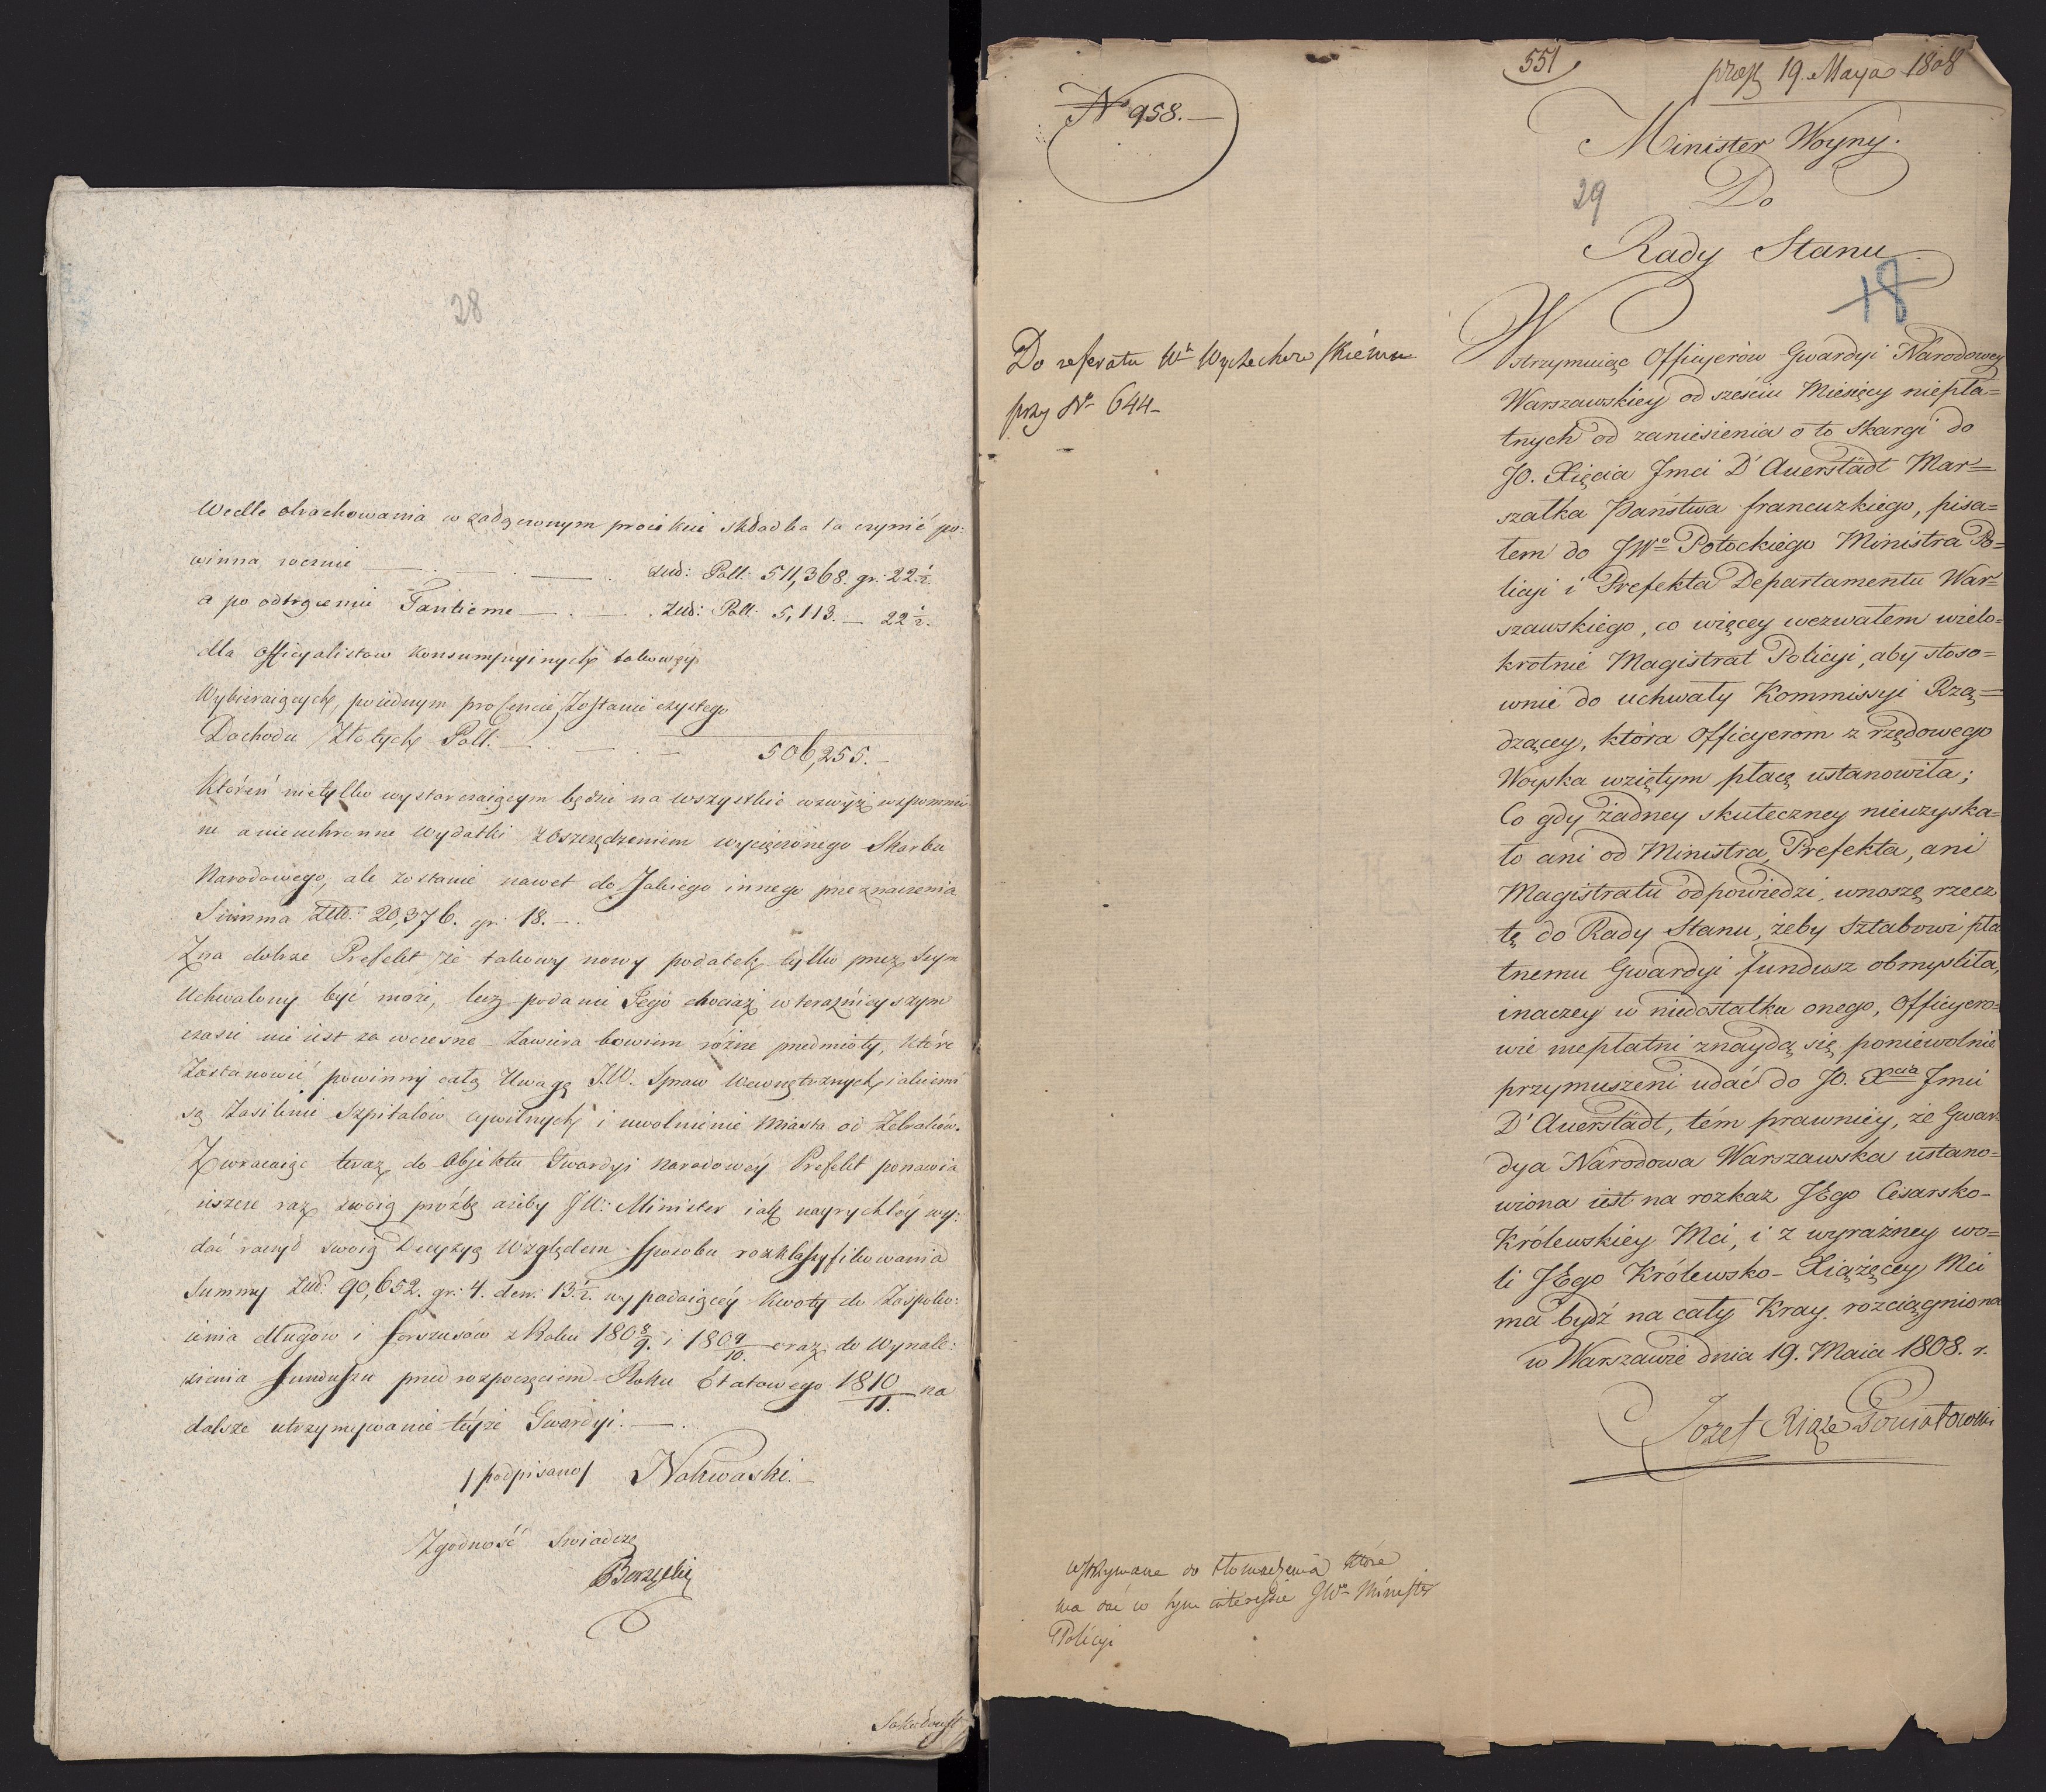 28
Wedle obrachowania w załączonym proiekcie składka ta czynić po:
winna rocznie — . — . — . Złłd: Poll: 511,368. gr: 22½.
a po odtrąceniu Tantieme — . — . Złłd: Poll: 5,113. — 22½.
dla Officyalistow Konsumpcyinych takowąż
Wybieraiących, po iednym procencie, Zostanie czystego
Dochodu Złotych Poll: — . — . — 506,255. —
Któren nietylko wystarczaiącym będzie na wszystkie wzwyż wspomnio
ne a nieuchronne Wydatki z Oszczędzeniem wycięczonego Skarbu
Narodowego, ale zostanie nawet do Jakiego innego przeznaczenia
Summa Złłd: 20,376. gr: 18. — .
Zna dobrze Prefekt że takowy nowy podatek tylko przez Seym
Uchwalony być może, lecz podanie Jego chociaż w teraźnieyszym
czasie nie iest za wczesne Zawiera bowiem różne przedmioty, które
Zastanowić powinny całą Uwagę J.W. Spraw Wewnętrznych, iakiemi
są Zasilenie Szpitalów cywilnych i uwolnienie Miasta od Żebraków.
Zwracaiąc teraz do Objektu Gwardyi Narodowéy Prefekt ponawia
ieszcze raz swoią prożbę ażeby JW: Minister iak nayrychléy wy:
dać raczył swoią Decyzyą Względem sposobu rozklassyfikowania
Summy Złłd: 90,652. gr: 4. den: 13½. wypadaiącéy Kwoty do Zaspoko:
ienia długów i forszusów z Roku 180 8/9. i 180 9/10. oraz do Wynale:
zienia funduszu przed rozpoczęciem Roku Etatowego 1810/11. na
dalsze utrzymywanie téyże Gwardyi. — .
/podpisano/ Nakwaski. —
Zgodność Swiadczę
Borzęcki
551
praes 19. Maya 1808
No 958. —
Minister Woyny.
29
Do
Rady Stanu.
18
Do referatu Wu Wyczechowskiému
przy No 644 —
Wstrzymuiąc Officyerów Gwardyi Narodowey
Warszawskiey od sześciu Miesięcy niepła=
tnych od zaniesienia o to skargi do
JO. Xięcia Jmci D'Auerstädt Mar=
szałka Państwa francuzkiego, pisa=
łem do JWo Potockiego Ministra Po=
licyi i Prefekta Departamentu War=
szawskiego, co więcey wezwałem wielo=
krotnie Magistrat Policyi, aby stoso=
wnie do uchwały Kommissyi Rzą=
dzącey, która Officyerom z rzędowego
Woyska wziętym płacę ustanowiła;
Co gdy żadney skuteczney nieuzyska=
ło ani od Ministra, Prefekta, ani
Magistratu odpowiedzi, wnoszę rzecz
tę do Rady Stanu, żeby Sztabowi pła
tnemu Gwardyi fundusz obmyśliła,
inaczey w niedostatku onego, Officyero=
wie niepłatni znaydą się poniewolnie
przymuszeni udać do JO. Xcia Jmci
D'Auerstädt, tém prawniey, że Gwar=
dya Narodowa Warszawska ustano=
wiona iest na rozkaz JEgo Cesarsko-
Królewskiey Mci, i z wyraźney wo=
li JEgo Królewsko-Xiążęcey Mci
ma bydź na cały Kray rozciągniona
w Warszawie dnia 19. Maia 1808. r.
Jozef Xiąże Poniatowski
Wstrzymane do tłomaczenia które
ma dać w tym interesie JWo Minister
Policyi